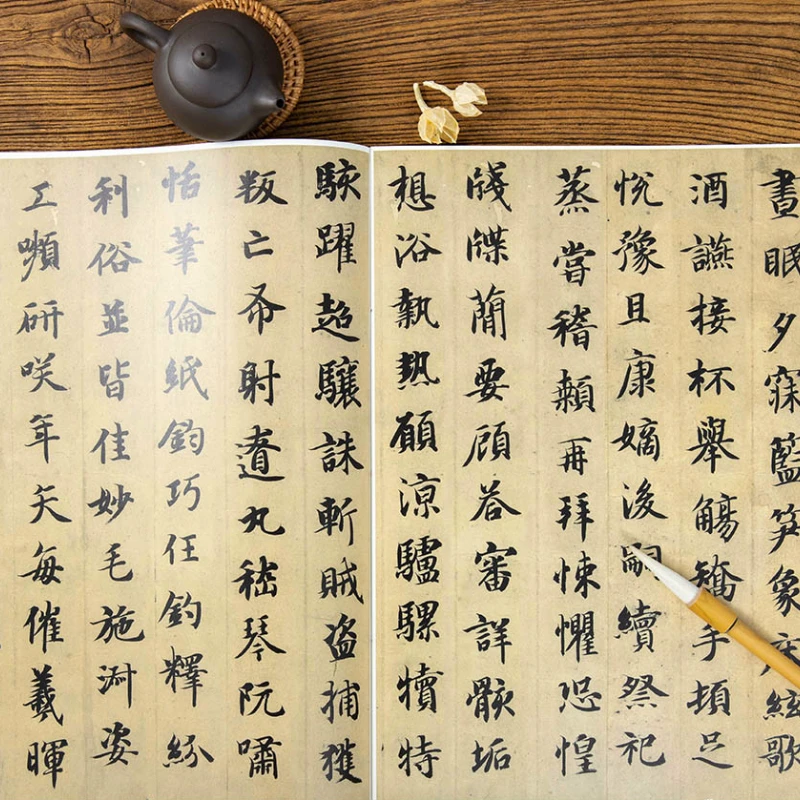 晝眠夕寐籃笋象床絃歌
酒讌接杯舉觴矯手頓足
悅豫且康嫡後嗣續祭祀
蒸嘗稽顙再拜悚懼恐惶
牋牒簡要顧荅審詳骸垢
想浴執熱願涼驢騾犢特
駭躍超驤誅斬賊盗捕獲
叛亡布射遼丸嵇琴阮嘯
恬筆倫紙鈞巧任釣釋紛
利俗並皆佳妙毛施淑姿
工嚬研咲年矢每催羲暉